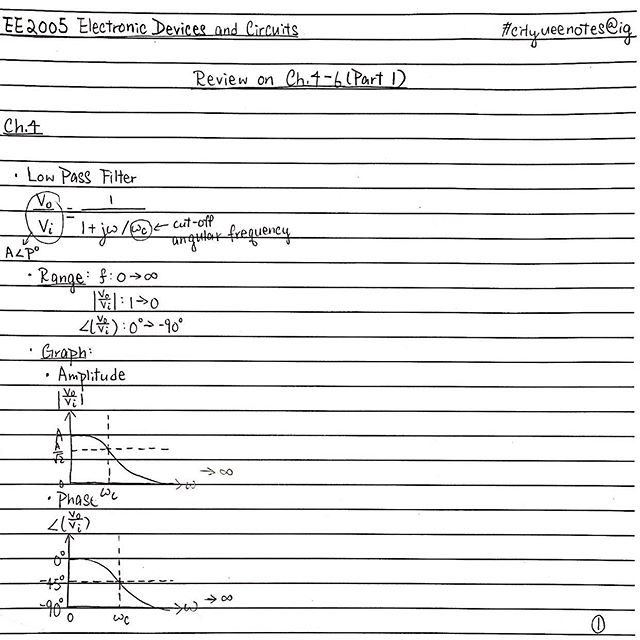 EE2005 Electronic Devices and Circuits #cityueenotes@ig
Review on Ch.4-6 (Part 1)
Ch.4
· Low Pass Filter
Vo/Vi = 1/(1+jω/ωc) ← cut-off angular frequency
A∠P°
· Range: f: 0→∞
|Vo/Vi|: 1→0
∠(Vo/Vi): 0°→-90°
· Graph:
· Amplitude
|Vo/Vi|
A
A/√2
0 ωc ω →∞
· Phase
∠(Vo/Vi)
0°
-45°
-90° ω →∞
0 ωc
1